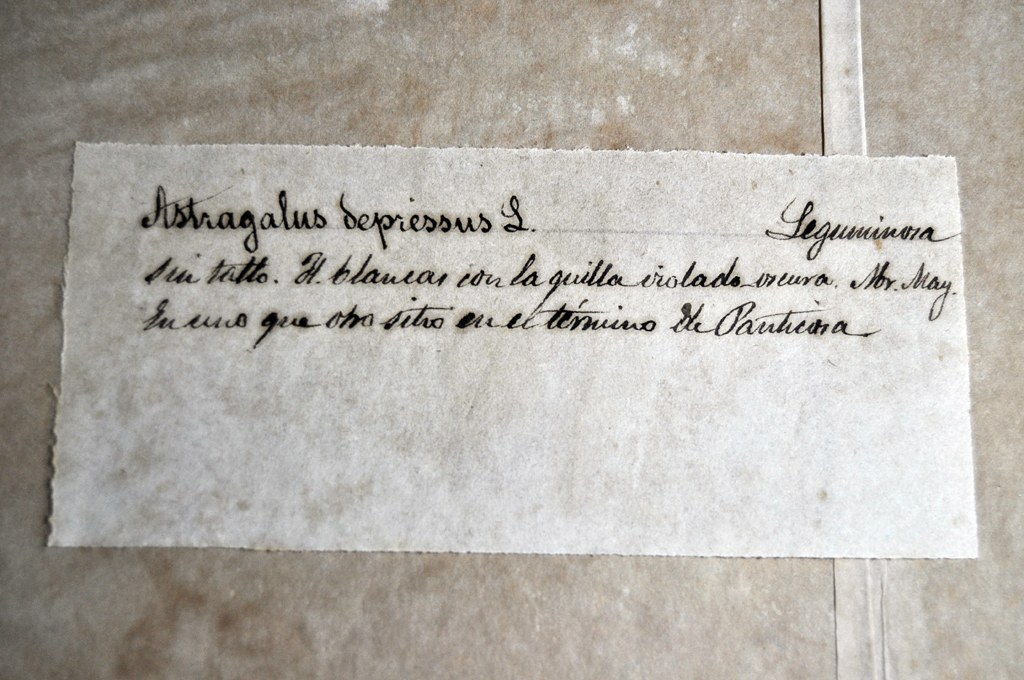 Astragalus depressus L. Leguminosa
Sin tallo. Fl. blancas con la quilla violado oscura. Abr. May.
En uno que otro sitio en el término de Panticosa